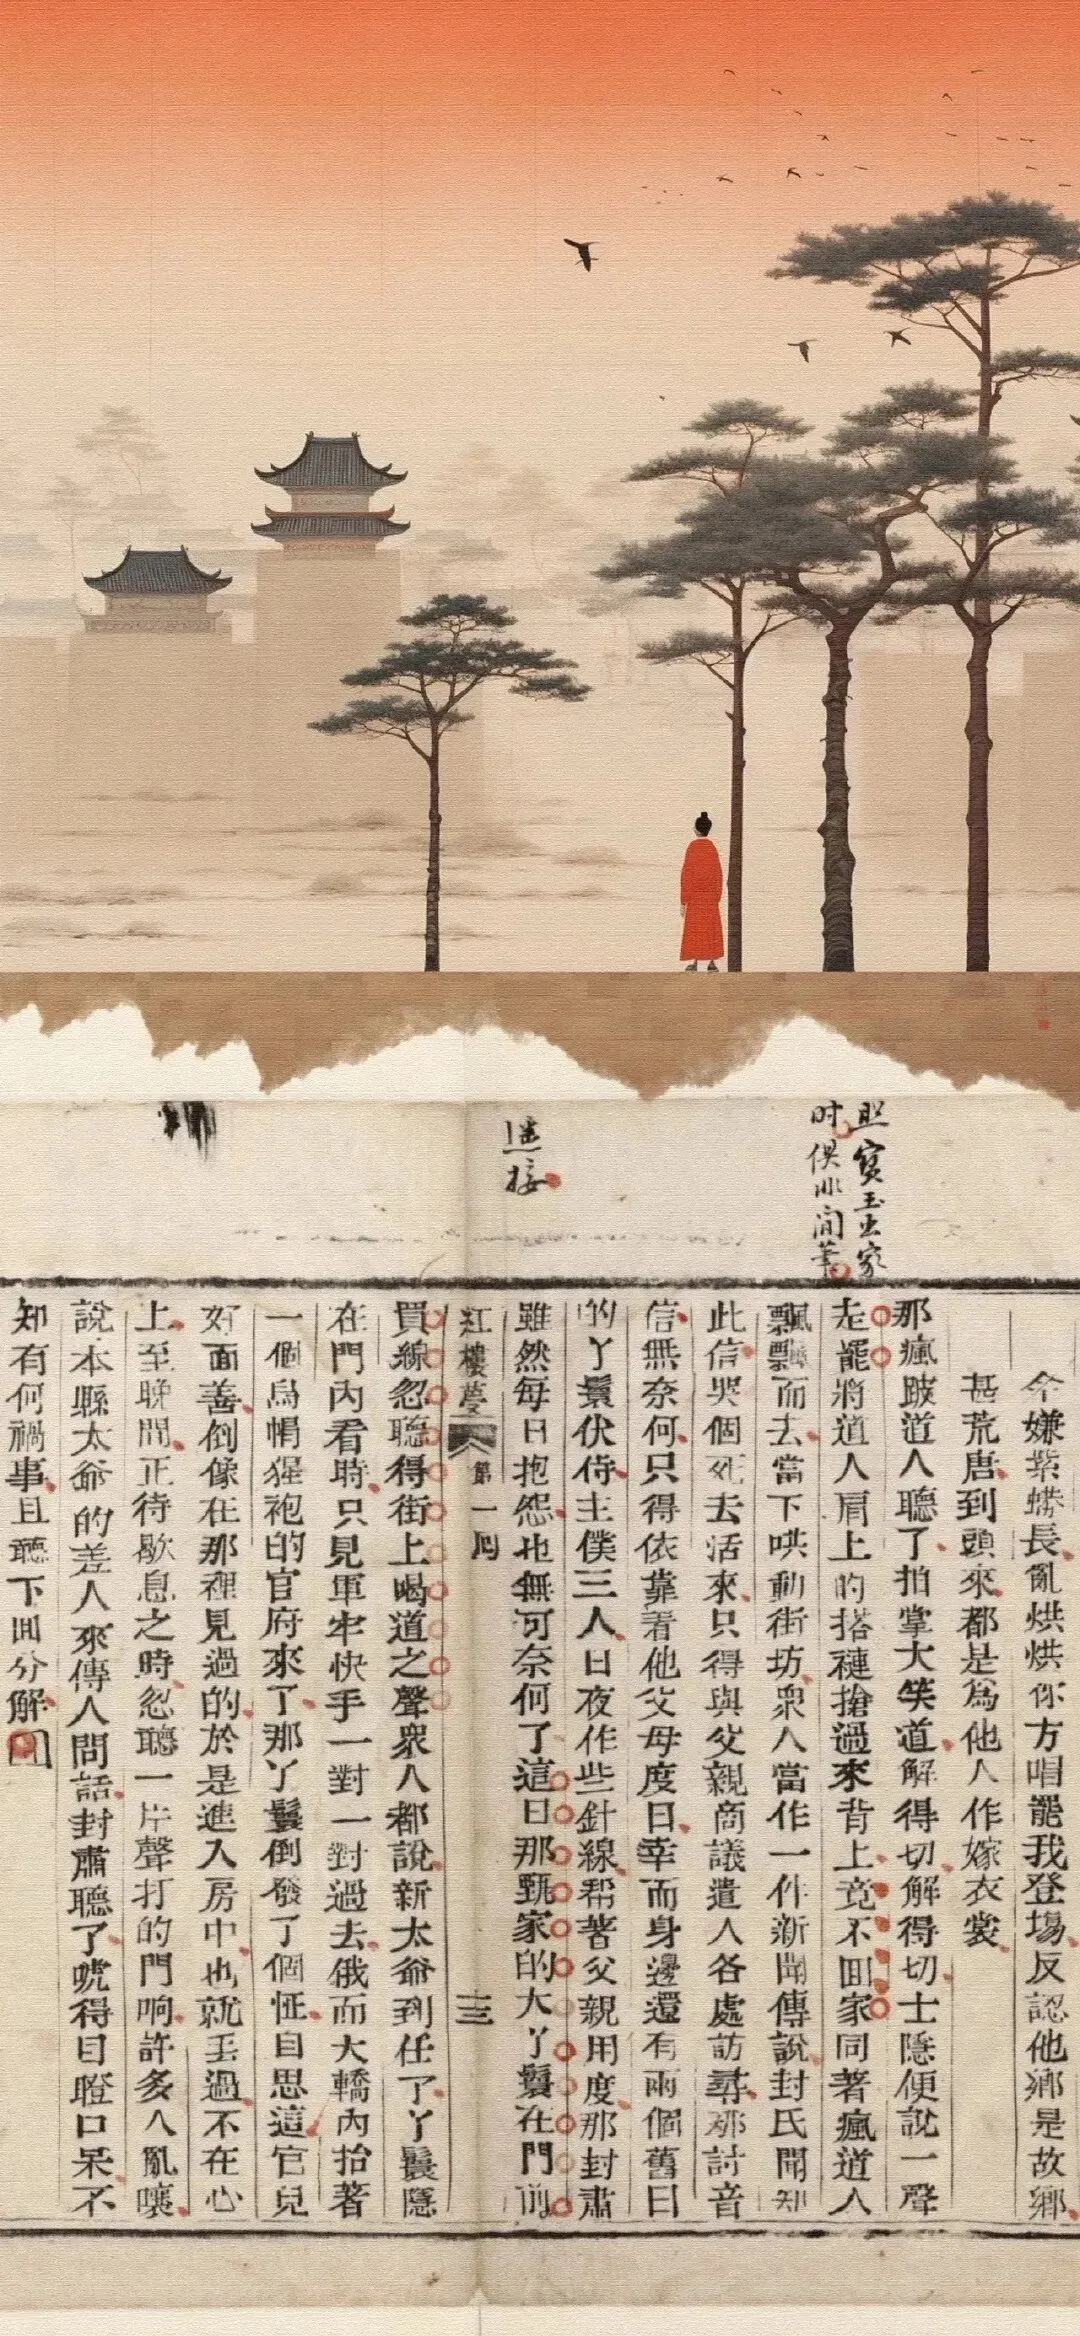 照寳玉出家
时俱非閒筆
遥接
今嫌紫蟒長亂烘烘你方唱罷我登塲反認他鄉是故鄉
甚荒唐到頭來都是為他人作嫁衣裳
那瘋跛道人聽了拍掌大笑道解得切解得切士隱便說一聲
走罷將道人肩上的搭褳搶過來背上竟不囬家同著瘋道人
飄飄而去當下哄動街坊衆人當作一件新聞傳說封氏聞知
此信哭個死去活來只得與父親商議遣人各處訪尋那討音
信無奈何只得依靠着他父母度日幸而身邊還有兩個舊日
的丫鬟伏侍主僕三人日夜作些針線帮著父親用度那封肅
雖然每日抱怨也無可奈何了這日那甄家的大丫鬟在門前
紅樓夢 第一囬 三
買線忽聽得街上喝道之聲衆人都說新太爺到任了丫鬟隱
在門內看時只見軍牢快手一對一對過去俄而大轎內抬著
一個烏帽猩袍的官府來了那丫鬟倒發了個怔自思這官兒
好面善倒像在那裡見過的於是進入房中也就丟過不在心
上至晚間正待歇息之時忽聽一片聲打的門响許多人亂嚷
說本縣太爺的差人來傳人問話封肅聽了唬得目瞪口呆不
知有何禍事且聽下囬分解